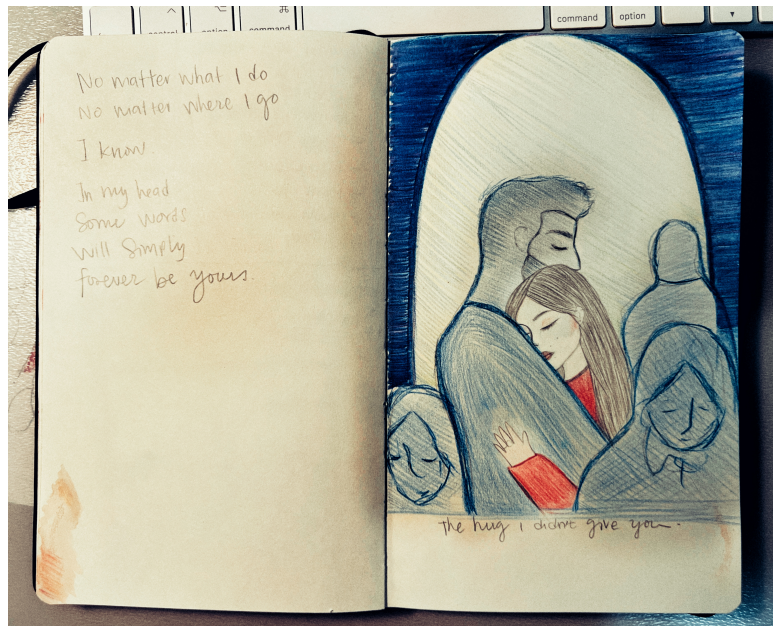 ⌘
control
option
command
command
option
No matter what I do
No matter where I go
I know.
In my head
Some words
will simply
forever be yours.
The hug I didn't give you.